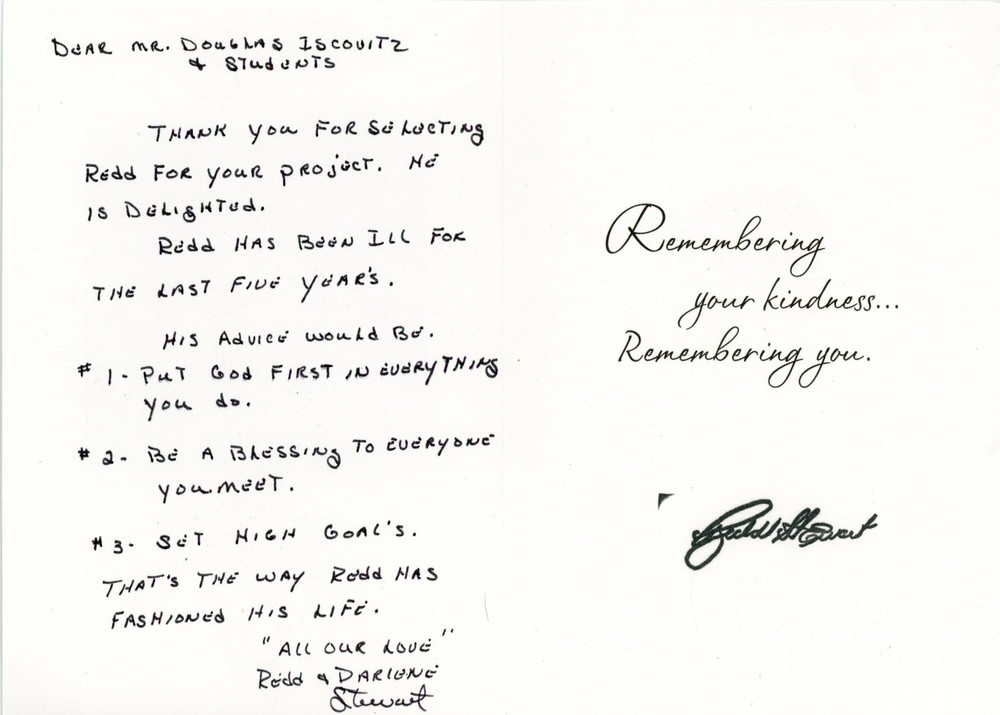 Dear Mr. Douglas Iscovitz
& Students
Thank you for selecting
Redd for your project. He
is delighted.
Redd has been ill for
the last five year's.
His advice would be.
# 1- Put God first in everything
you do.
# 2- Be a blessing to everyone
you meet.
# 3- Set high goal's.
That's the way Redd has
fashioned his life.
"All our love"
Redd & Darlene
Stewart
Remembering
your kindness...
Remembering you.
Redd Stewart